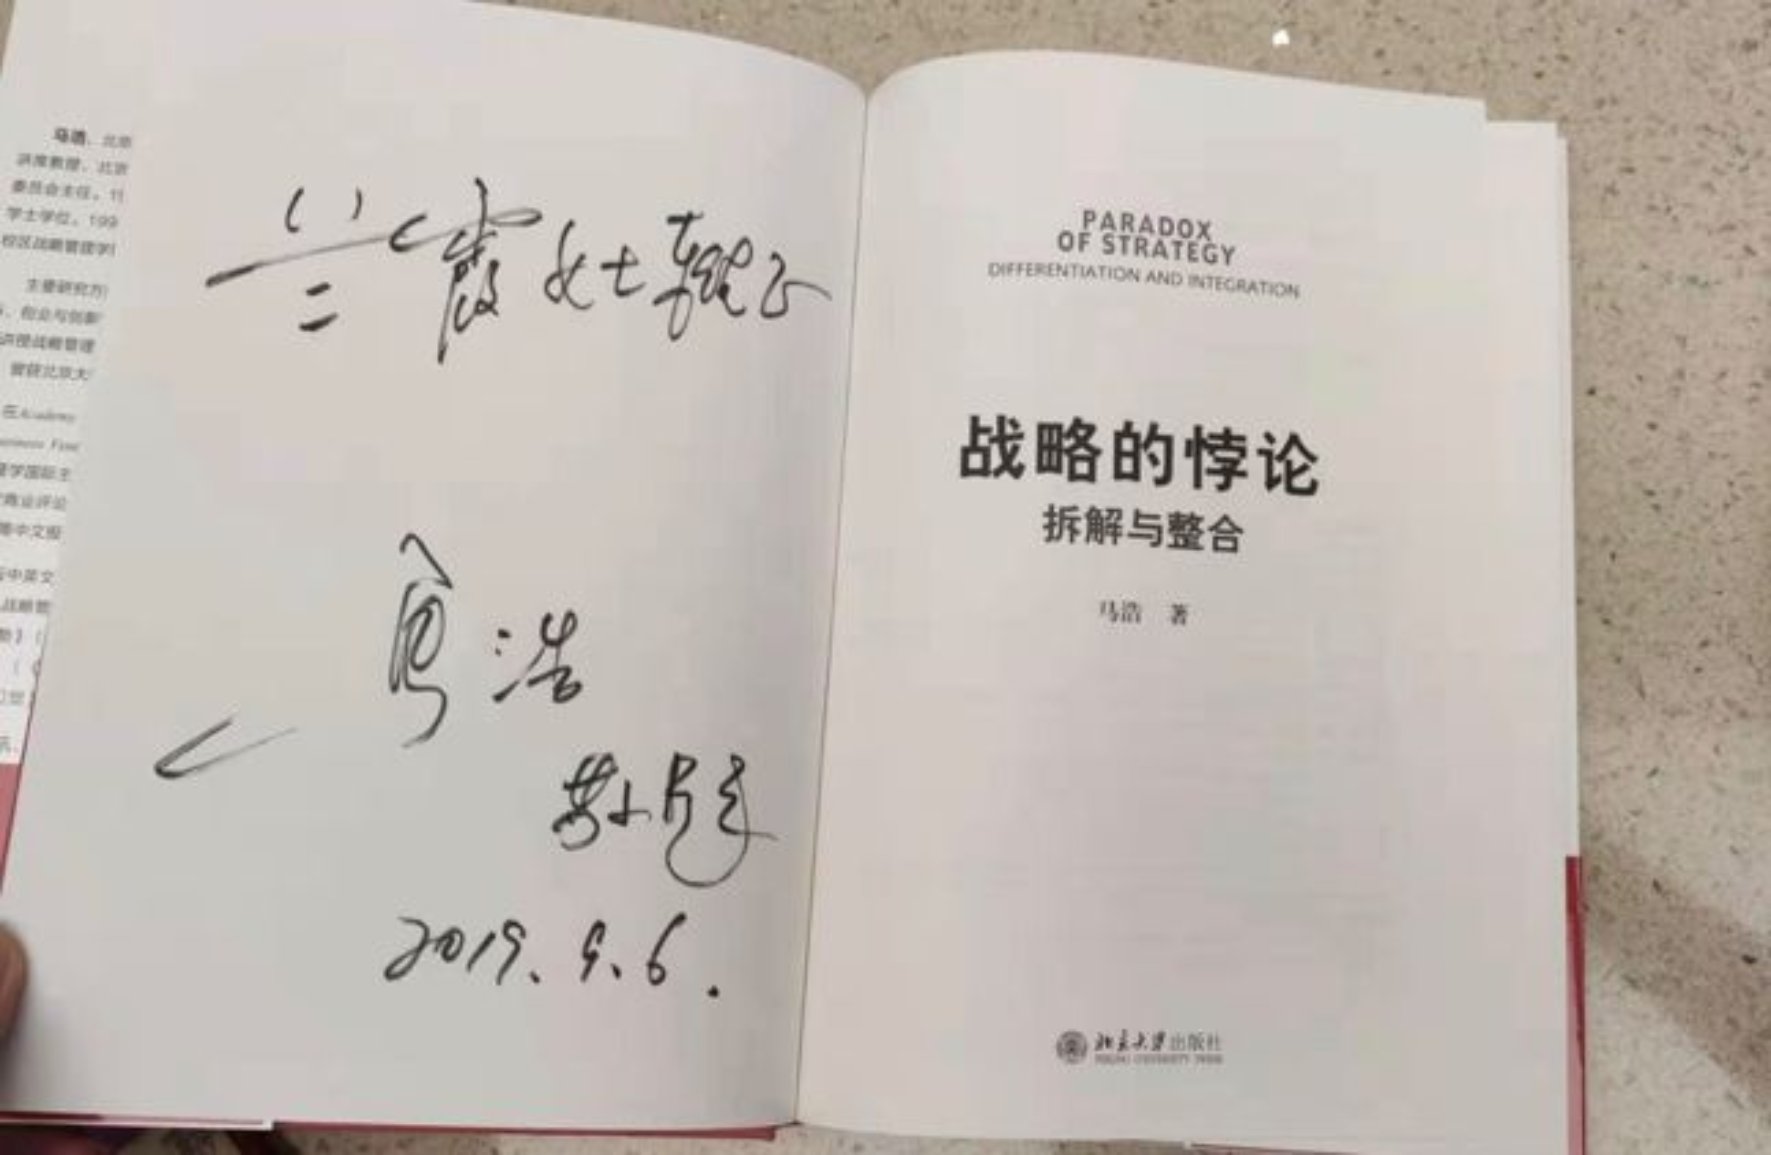 马浩，北京
讲席教授，北京
委员会主任。11
学士学位，199
校区战略管理学
主要研究方
创业与创新
讲授战略管理
曾获北京大
在Academy
管学国际主
商业评论
等中文报
中英文
战略管
兰霞女士雅正
马浩
敬题
2019.9.6.
PARADOX
OF STRATEGY
DIFFERENTIATION AND INTEGRATION
战略的悖论
拆解与整合
马浩 著
北京大学出版社
PEKING UNIVERSITY PRESS